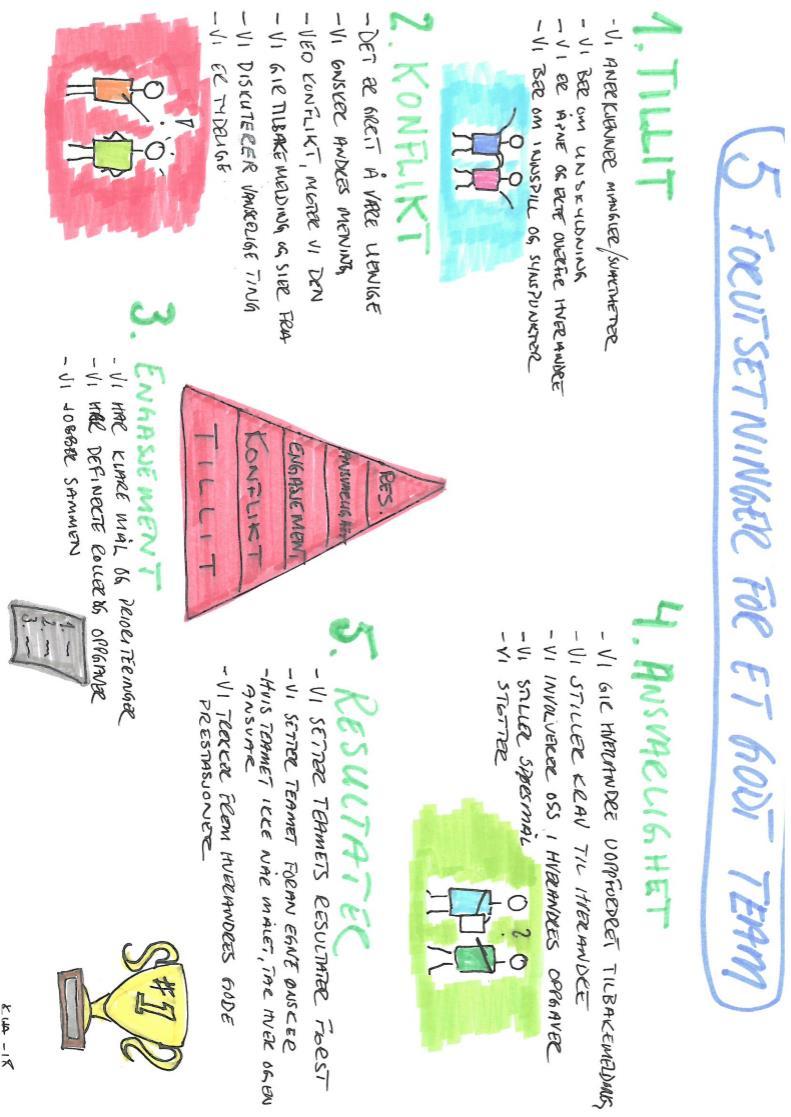 5 FORUTSETNINGER FOR ET GODT TEAM
1. TILLIT
- VI ANERKJENNER MANGLER/SVAKHETER
- VI BER OM UNSKYLDNING
- VI ER ÅPNE OG EKTE OVERFOR HVERANDRE
- VI BER OM INNSPILL OG SYNSPUNKTER
2. KONFLIKT
- DET ER GREIT Å VÆRE UENIGE
- VI ØNSKER ANDRES MENING
- VED KONFLIKT, MØTER VI DEN
- VI GIR TILBAKEMELDING OG SIER FRA
- VI DISKUTERER VANSKELIGE TING
- VI ER TYDELIGE
!
3. ENGASJEMENT
- VI HAR KLARE MÅL OG PRIORITERINGER
- VI HAR DEFINERTE ROLLER OG OPPGAVER
- VI JOBBER SAMMEN
1. -
2. ~
3. ~
RES.
ANSVARLIGHET
ENGASJEMENT
KONFLIKT
TILLIT
4. ANSVARLIGHET
- VI GIR HVERANDRE UOPPFORDRET TILBAKEMELDING
- VI STILLER KRAV TIL HVERANDRE
- VI INVOLVERER OSS I HVERANDRES OPPGAVER
- VI STILLER SPØRSMÅL
- VI STØTTER
?
5. RESULTATER
- VI SETTER TEAMETS RESULTATER FØRST
- VI SETTER TEAMET FORAN EGNE ØNSKER
- HVIS TEAMET IKKE NÅR MÅLET, TAR HVER OG EN
ANSVAR
- VI TREKKER FREM HVERANDRES GODE
PRESTASJONER
#1